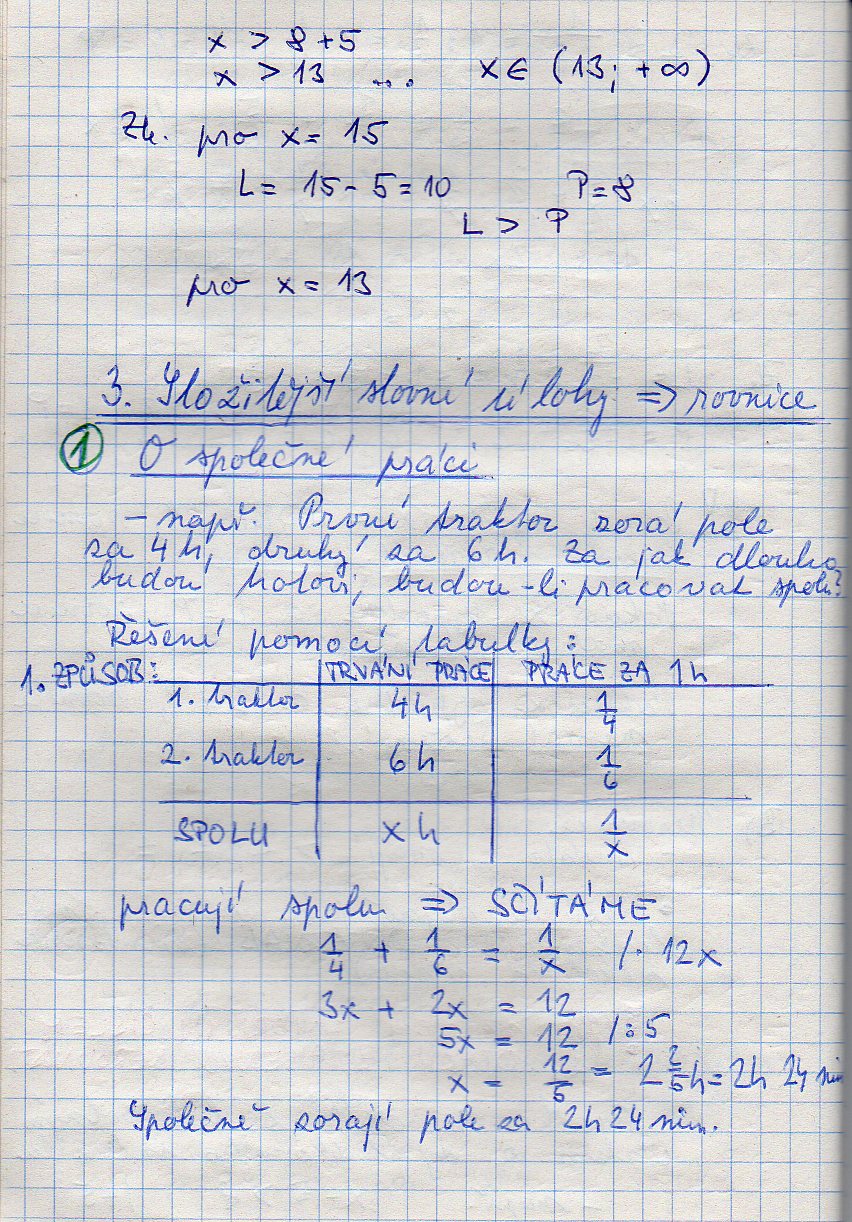 x > 8 + 5
x > 13 ... x ∈ (13; + ∞)
Zk. pro x = 15
L = 15 - 5 = 10 P = 8
L > P
pro x = 13
3. Složitější slovní úlohy => rovnice
1 O společné práci
- např. První traktor zorá pole
za 4 h, druhý za 6 h. Za jak dlouho
budou hotovi, budou-li pracovat spolu?
Řešení pomocí tabulky:
1. ZPŮSOB: TRVÁNÍ PRÁCE PRÁCE ZA 1 h
1. traktor 4 h 1/4
2. traktor 6 h 1/6
SPOLU x h 1/x
pracují spolu => SČÍTÁME
1/4 + 1/6 = 1/x /· 12x
3x + 2x = 12
5x = 12 /: 5
x = 12/5 = 2 2/5 h = 2h 24 min
Společně zorají pole za 2h 24 min.